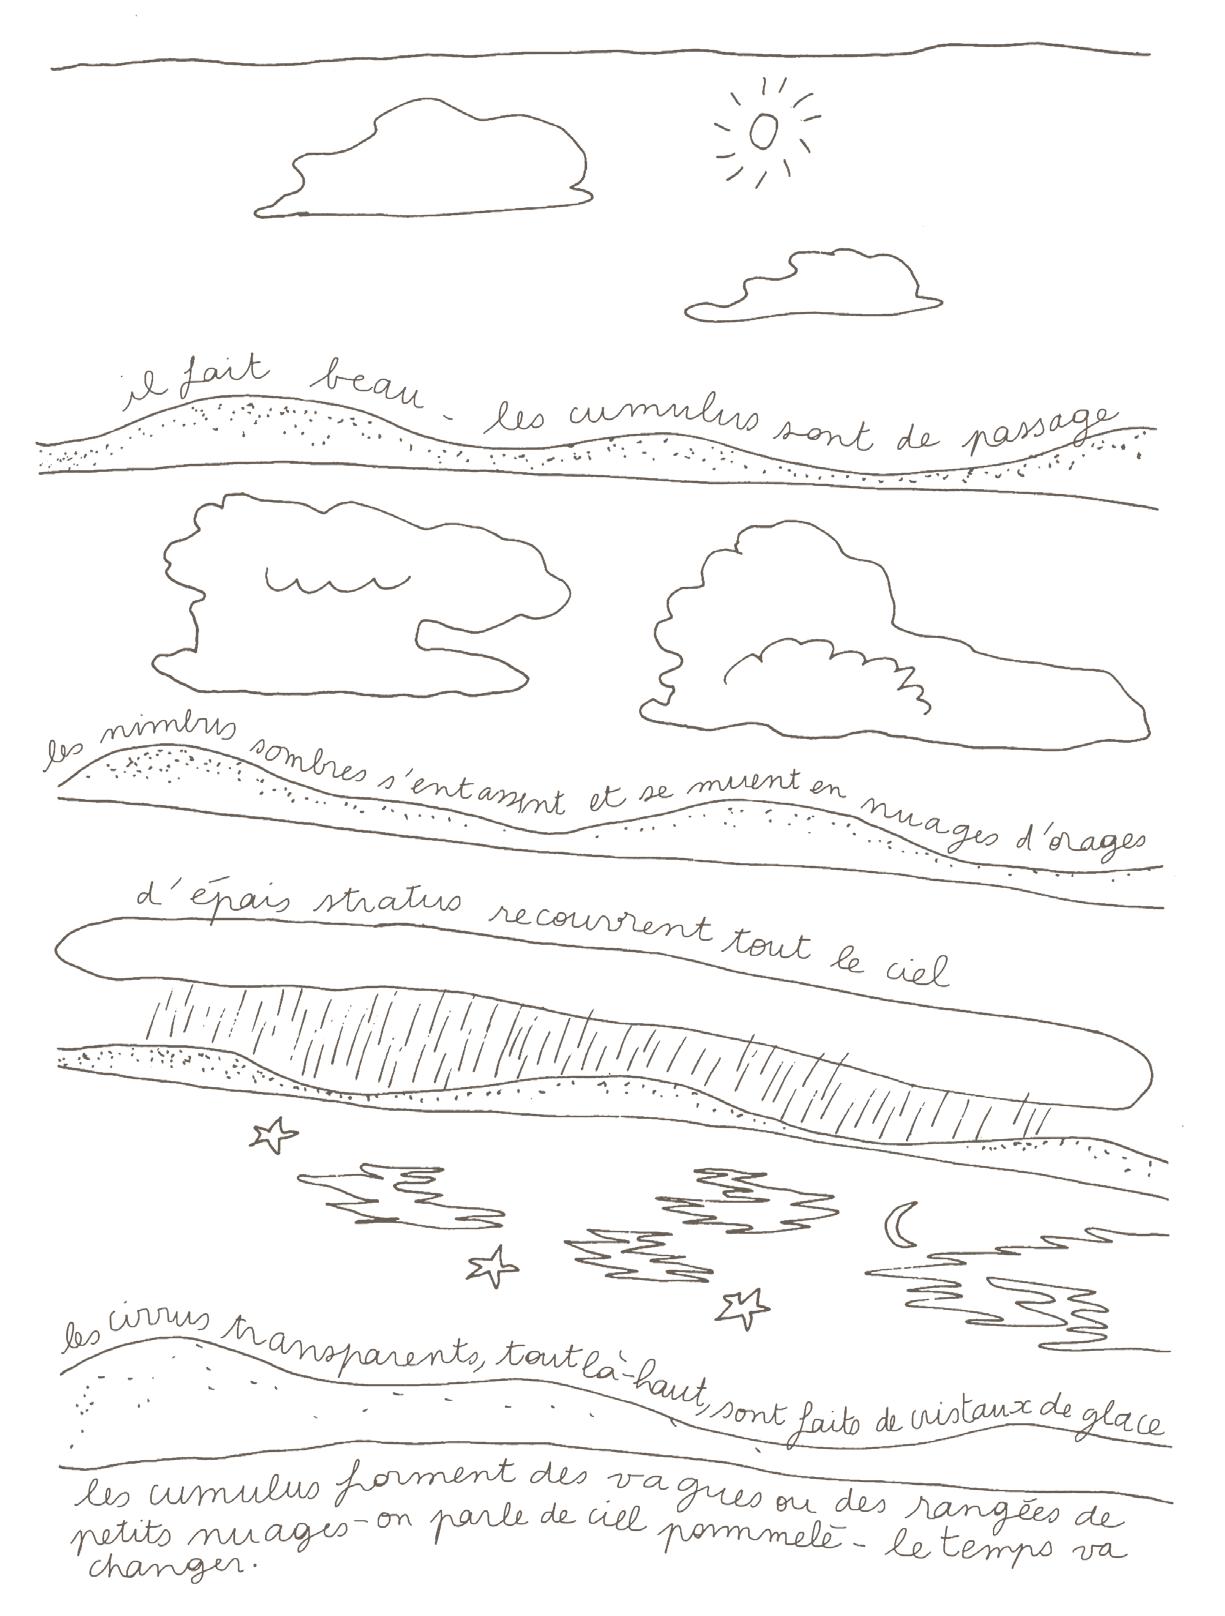 il fait beau - les cumulus sont de passage
les nimbus sombres s'entassent et se muent en nuages d'orages
d'épais stratus recouvrent tout le ciel
les cirrus transparents, tout là-haut, sont faits de cristaux de glace
les cumulus forment des vagues ou des rangées de
petits nuages - on parle de ciel pommelé - le temps va
changer.